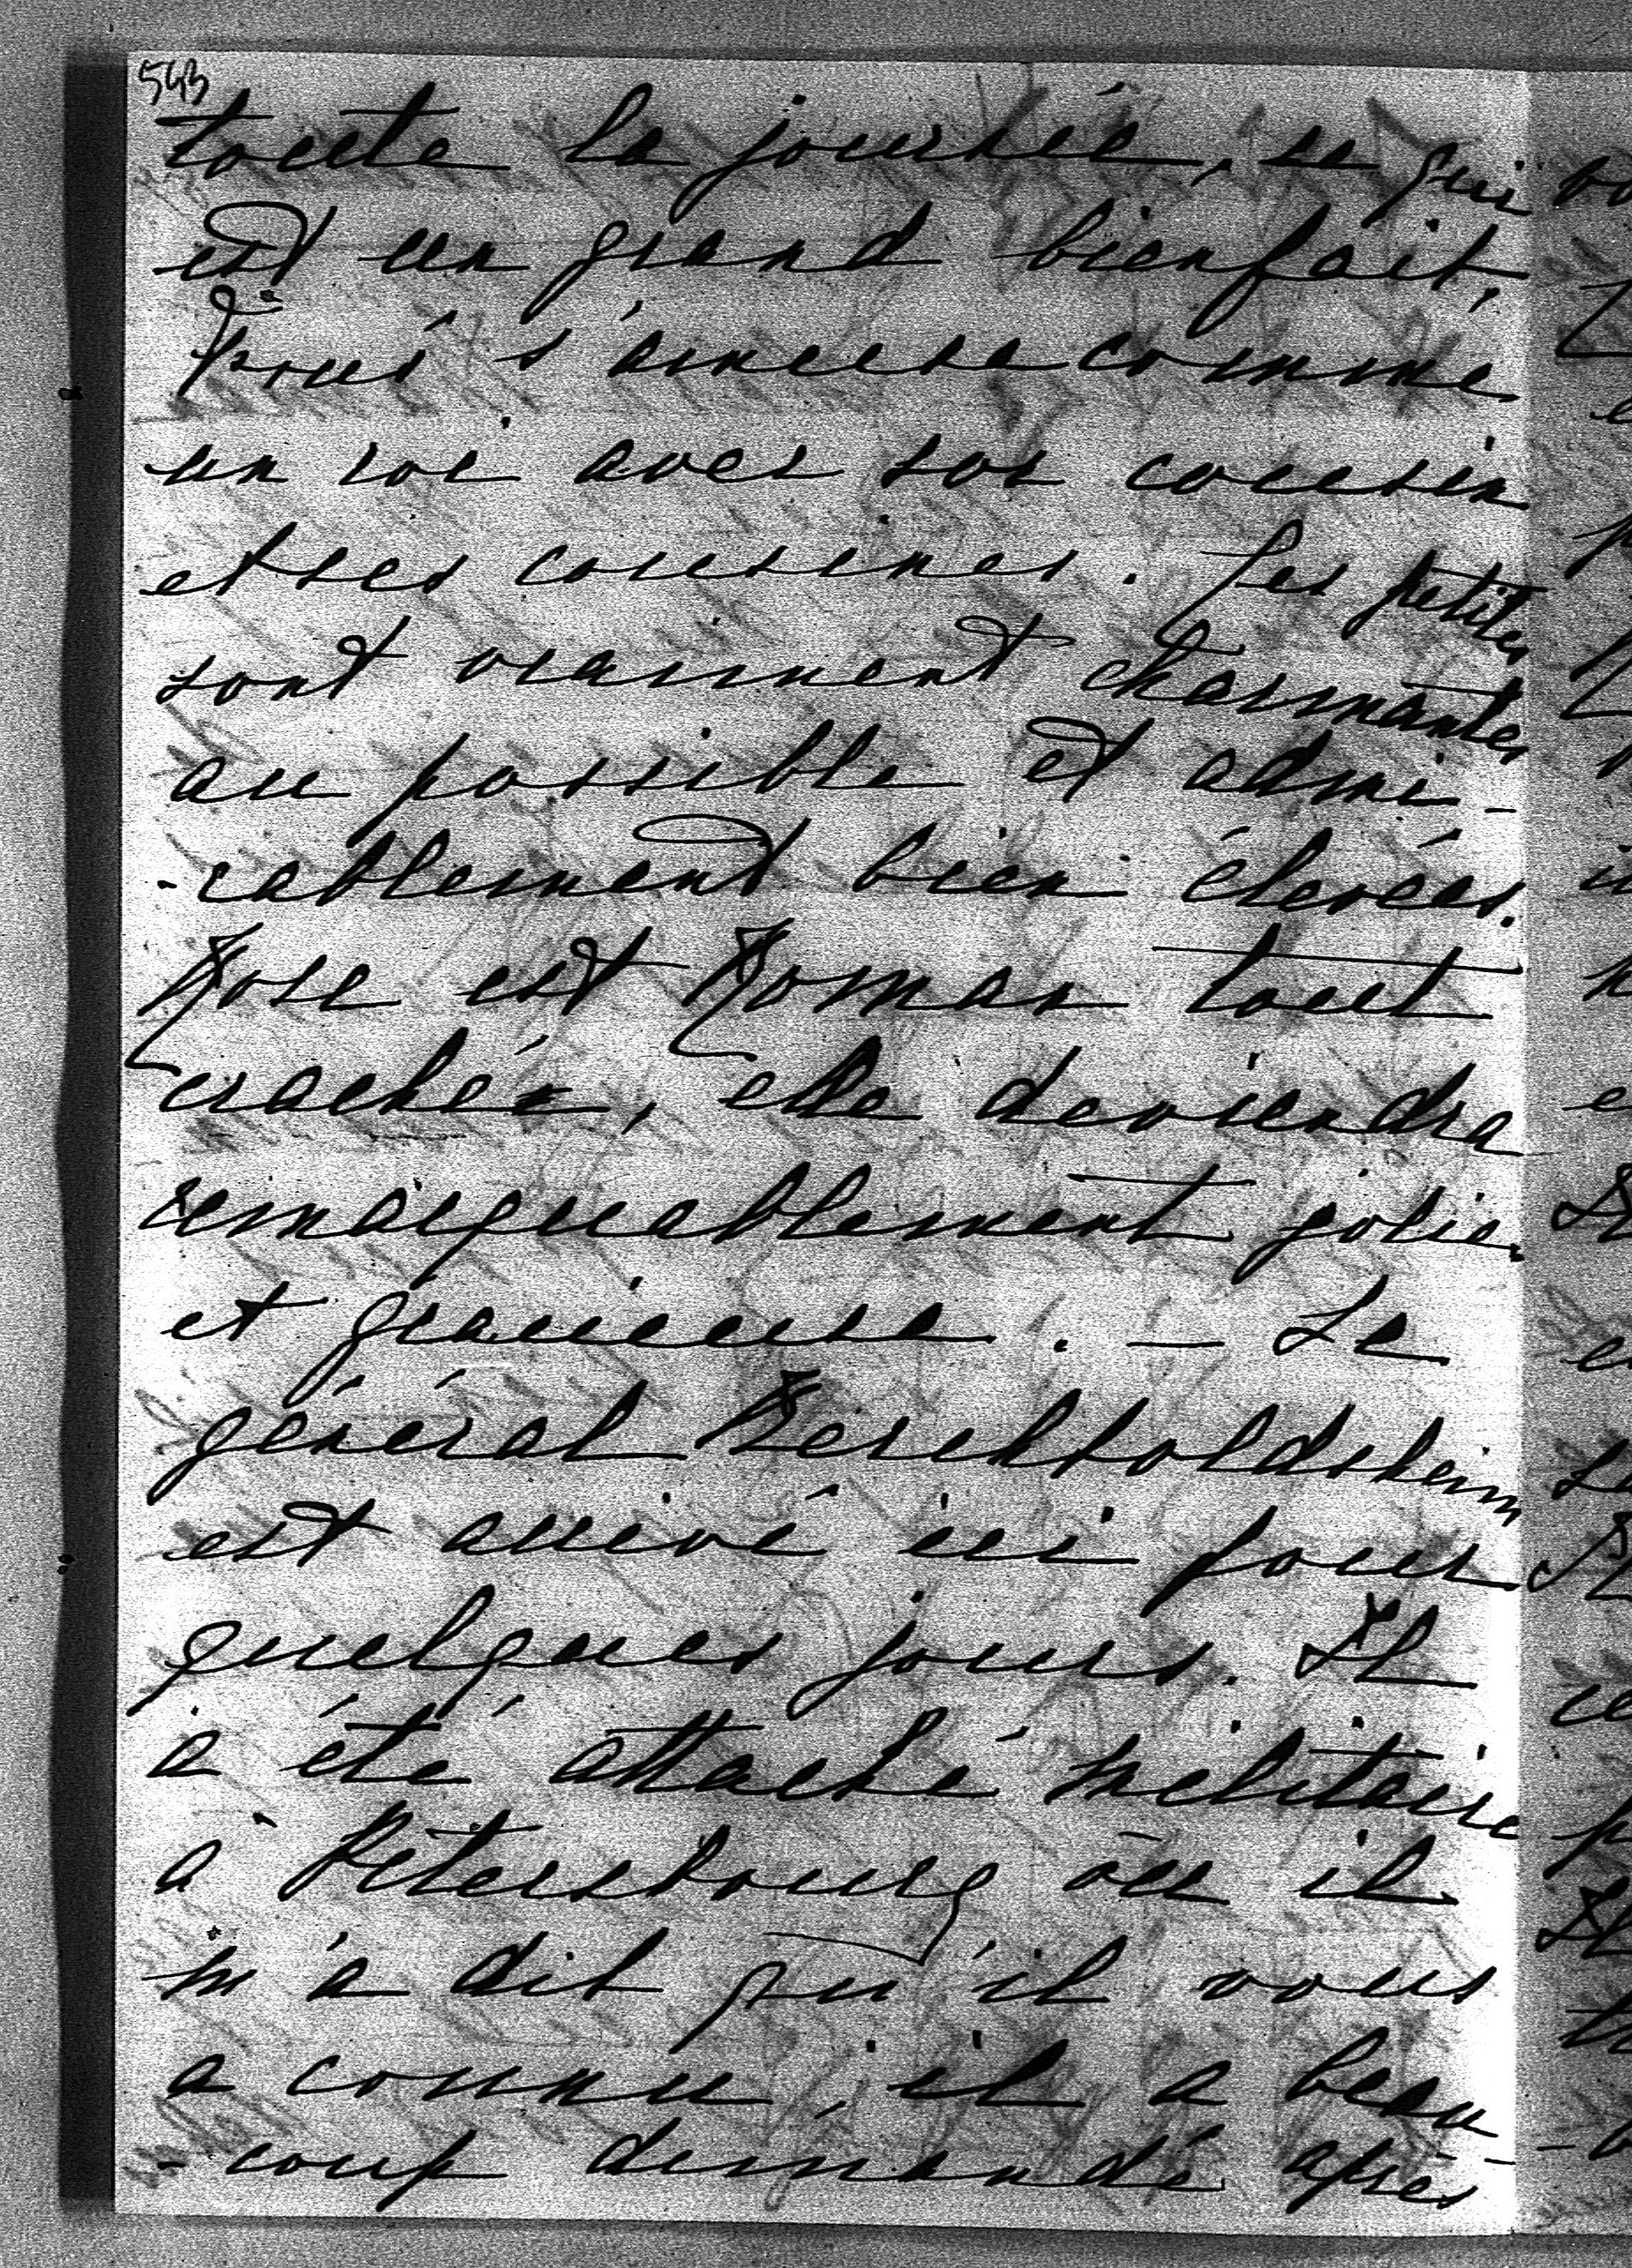 543
toute la journée, ce qui
est un grand bienfait,
s'amuse comme
un roi avec son cousin
et ses cousines. Les petites
sont vraiment charmantes
au possible et admi-
-rablement bien élevées.
Rose est Roman tout
crachée, elle deviendra
remarquablement jolie
et gracieuse. — Le
général
est arrivé ici pour
quelques jours. Il
a été attaché militaire
à Pétersbourg où il
m'a dit qu'il vous
a connu, il a beau-
-coup demandé après